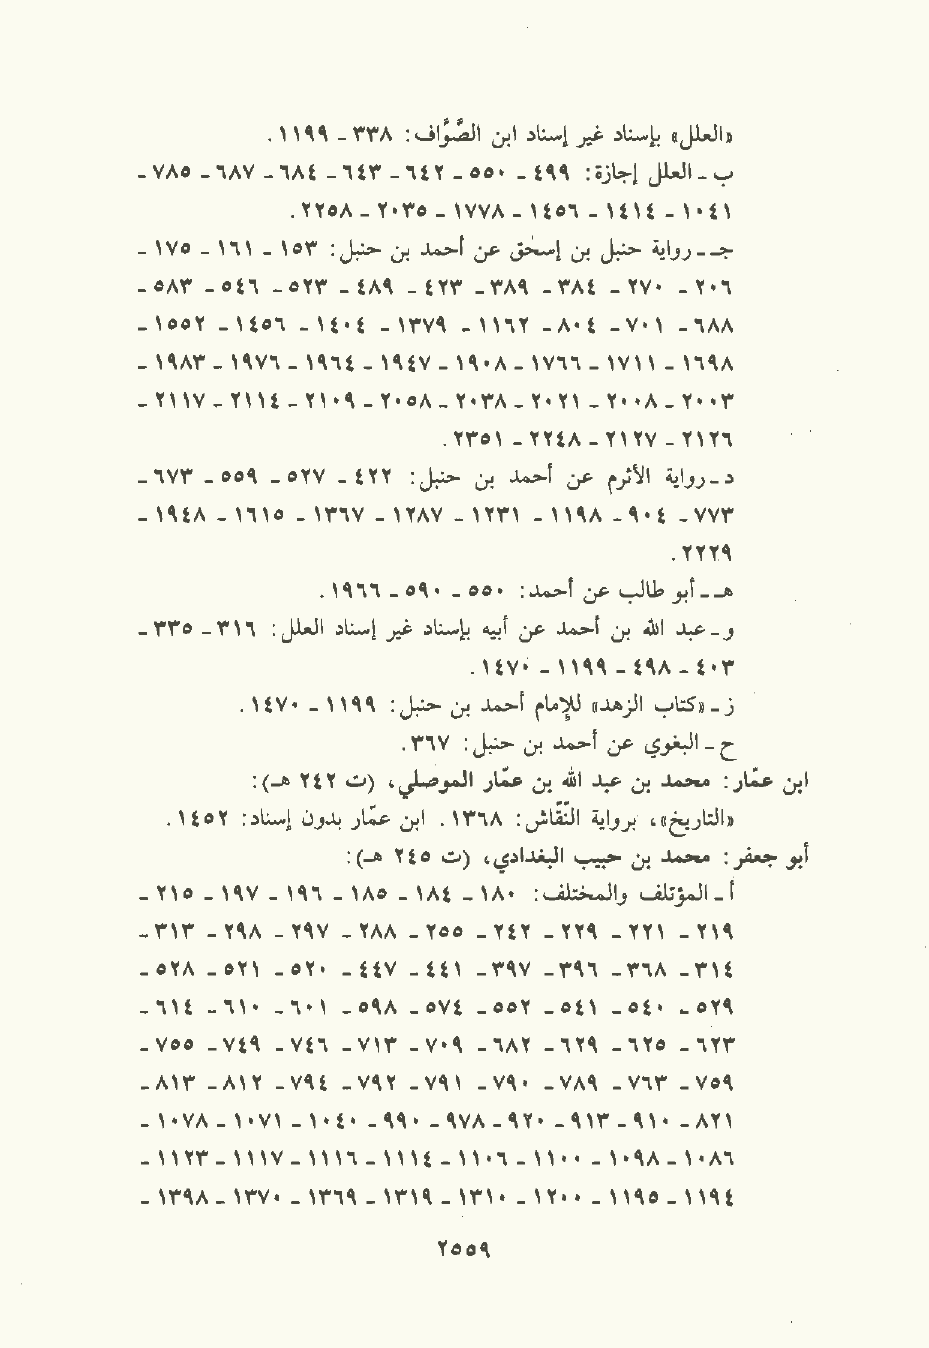 «العلل» بإسناد غير إسناد ابن الصَّوَّاف: ٣٣٨ - ١١٩٩.
ب - العلل إجازة: ٤٩٩ - ٥٥٠ - ٦٤٢ - ٦٤٣ - ٦٨٤ - ٦٨٧ - ٧٨٥ -
١٠٤١ - ١٤١٤ - ١٤٥٦ - ١٧٧٨ - ٢٠٣٥ - ٢٢٥٨.
جـ - رواية حنبل بن إسحٰق عن أحمد بن حنبل: ١٥٣ - ١٦١ - ١٧٥ -
٢٠٦ - ٢٧٠ - ٣٨٤ - ٣٨٩ - ٤٢٣ - ٤٨٩ - ٥٢٣ - ٥٤٦ - ٥٨٣ -
٦٨٨ - ٧٠١ - ٨٠٤ - ١١٦٢ - ١٣٧٩ - ١٤٠٤ - ١٤٥٦ - ١٥٥٢ -
١٦٩٨ - ١٧١١ - ١٧٦٦ - ١٩٠٨ - ١٩٤٧ - ١٩٦٤ - ١٩٧٦ - ١٩٨٣ -
٢٠٠٣ - ٢٠٠٨ - ٢٠٢١ - ٢٠٣٨ - ٢٠٥٨ - ٢١٠٩ - ٢١١٤ - ٢١١٧ -
٢١٢٦ - ٢١٢٧ - ٢٢٤٨ - ٢٣٥١.
د - رواية الأثرم عن أحمد بن حنبل: ٤٢٢ - ٥٢٧ - ٥٥٩ - ٦٧٣ -
٧٧٣ - ٩٠٤ - ١١٩٨ - ١٢٣١ - ١٢٨٧ - ١٣٦٧ - ١٦١٥ - ١٩٤٨ -
٢٢٢٩.
هـ - أبو طالب عن أحمد: ٥٥٠ - ٥٩٠ - ١٩٦٦.
و - عبد الله بن أحمد عن أبيه بإسناد غير إسناد العلل: ٣١٦ - ٣٣٥ -
٤٠٣ - ٤٩٨ - ١١٩٩ - ١٤٧٠.
ز - «كتاب الزهد» للإمام أحمد بن حنبل: ١١٩٩ - ١٤٧٠.
ح - البغوي عن أحمد بن حنبل: ٣٦٧.
ابن عمَّار: محمد بن عبد الله بن عمَّار الموصلي، (ت ٢٤٢ هـ):
«التاريخ»، برواية النَّقَّاش: ١٣٦٨. ابن عمَّار بدون إسناد: ١٤٥٢.
أبو جعفر: محمد بن حبيب البغدادي، (ت ٢٤٥ هـ):
أ - المؤتلف والمختلف: ١٨٠ - ١٨٤ - ١٨٥ - ١٩٦ - ١٩٧ - ٢١٥ -
٢١٩ - ٢٢١ - ٢٢٩ - ٢٤٢ - ٢٥٥ - ٢٨٨ - ٢٩٧ - ٢٩٨ - ٣١٣ -
٣١٤ - ٣٦٨ - ٣٩٦ - ٣٩٧ - ٤٤١ - ٤٤٧ - ٥٢٠ - ٥٢١ - ٥٢٨ -
٥٢٩ - ٥٤٠ - ٥٤١ - ٥٥٢ - ٥٧٤ - ٥٩٨ - ٦٠١ - ٦١٠ - ٦١٤ -
٦٢٣ - ٦٢٥ - ٦٢٩ - ٦٨٢ - ٧٠٩ - ٧١٣ - ٧٤٦ - ٧٤٩ - ٧٥٥ -
٧٥٩ - ٧٦٣ - ٧٨٩ - ٧٩٠ - ٧٩١ - ٧٩٢ - ٧٩٤ - ٨١٢ - ٨١٣ -
٨٢١ - ٩١٠ - ٩١٣ - ٩٢٠ - ٩٧٨ - ٩٩٠ - ١٠٤٠ - ١٠٧١ - ١٠٧٨ -
١٠٨٦ - ١٠٩٨ - ١١٠٠ - ١١٠٦ - ١١١٤ - ١١١٦ - ١١١٧ - ١١٢٣ -
١١٩٤ - ١١٩٥ - ١٢٠٠ - ١٣١٠ - ١٣١٩ - ١٣٦٩ - ١٣٧٠ - ١٣٩٨ -
٢٥٥٩